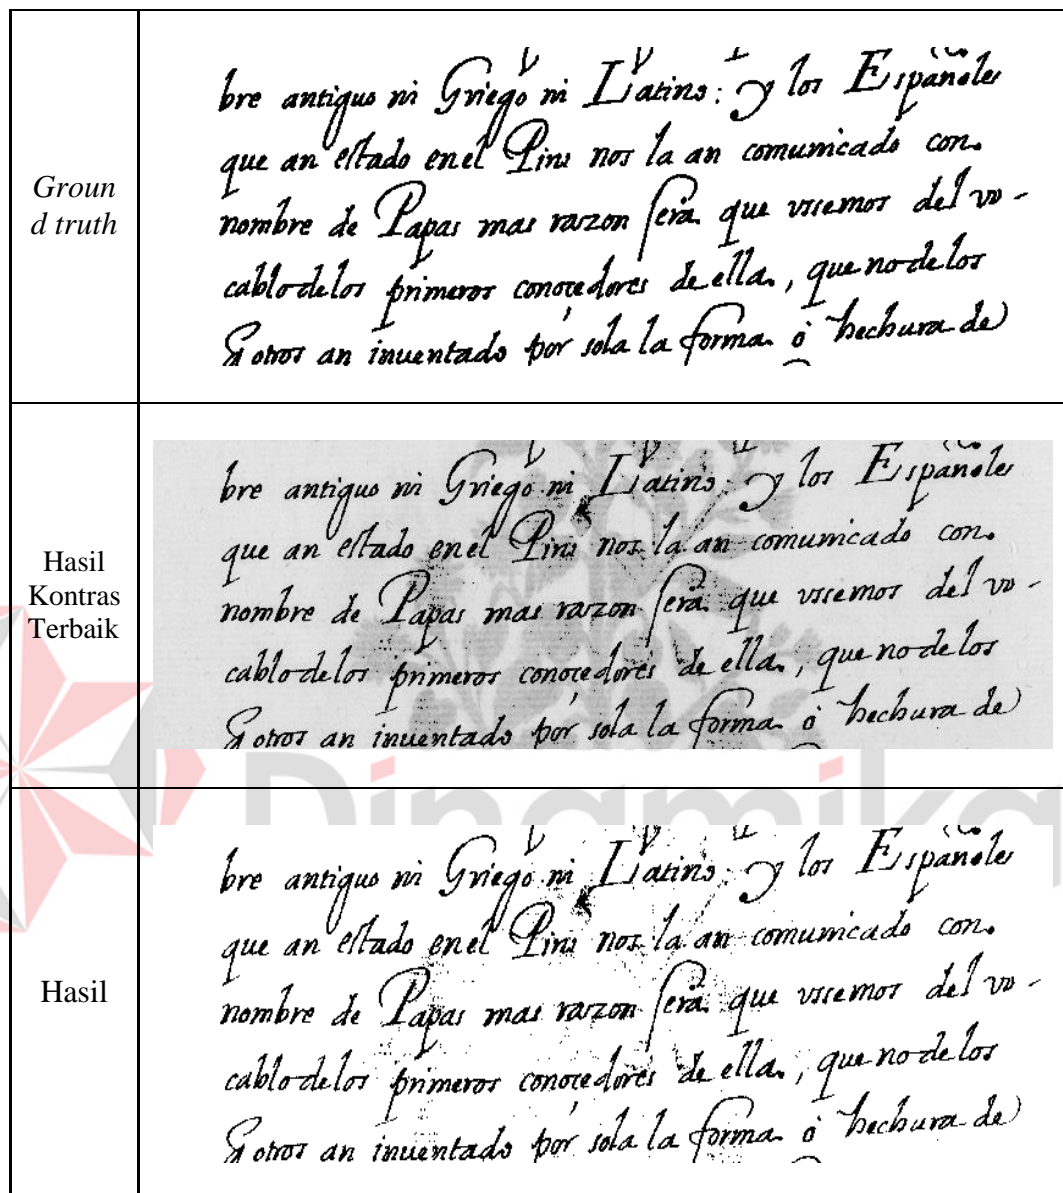 Groun
d truth
bre antiguo ni Griego ni Latino: y los Españoles
que an estado en el Piru nos la an comunicado con
nombre de Papas mas razon sera que usemos del vo-
cablo de los primeros conocedores de ella, que no de los
q otros an inuentado por sola la forma o hechura de
Hasil
Kontras
Terbaik
bre antiguo ni Griego ni Latino: y los Españoles
que an estado en el Piru nos la an comunicado con
nombre de Papas mas razon sera que usemos del vo-
cablo de los primeros conocedores de ella, que no de los
q otros an inuentado por sola la forma o hechura de
Dinamika
Hasil
bre antiguo ni Griego ni Latino: y los Españoles
que an estado en el Piru nos la an comunicado con
nombre de Papas mas razon sera que usemos del vo-
cablo de los primeros conocedores de ella, que no de los
q otros an inuentado por sola la forma o hechura de